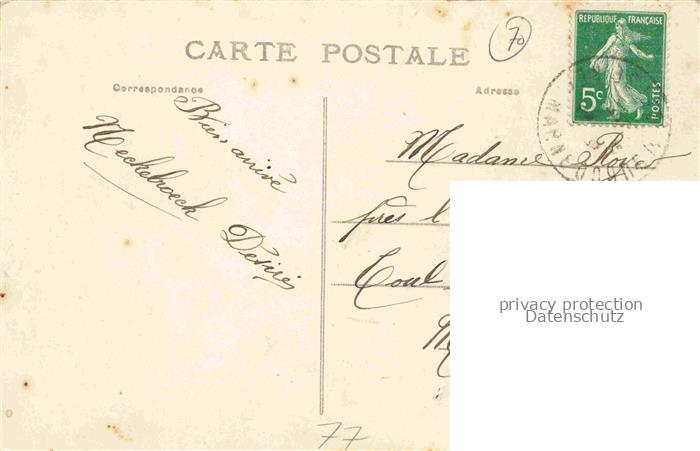 CARTE POSTALE
70
REPUBLIQUE FRANÇAISE
5c
POSTES
MARNE
Correspondance
Adresse
Bien arrivé
Heckebroeck Désiré
Madame Royer
près l
Toul
privacy protection
Datenschutz
77